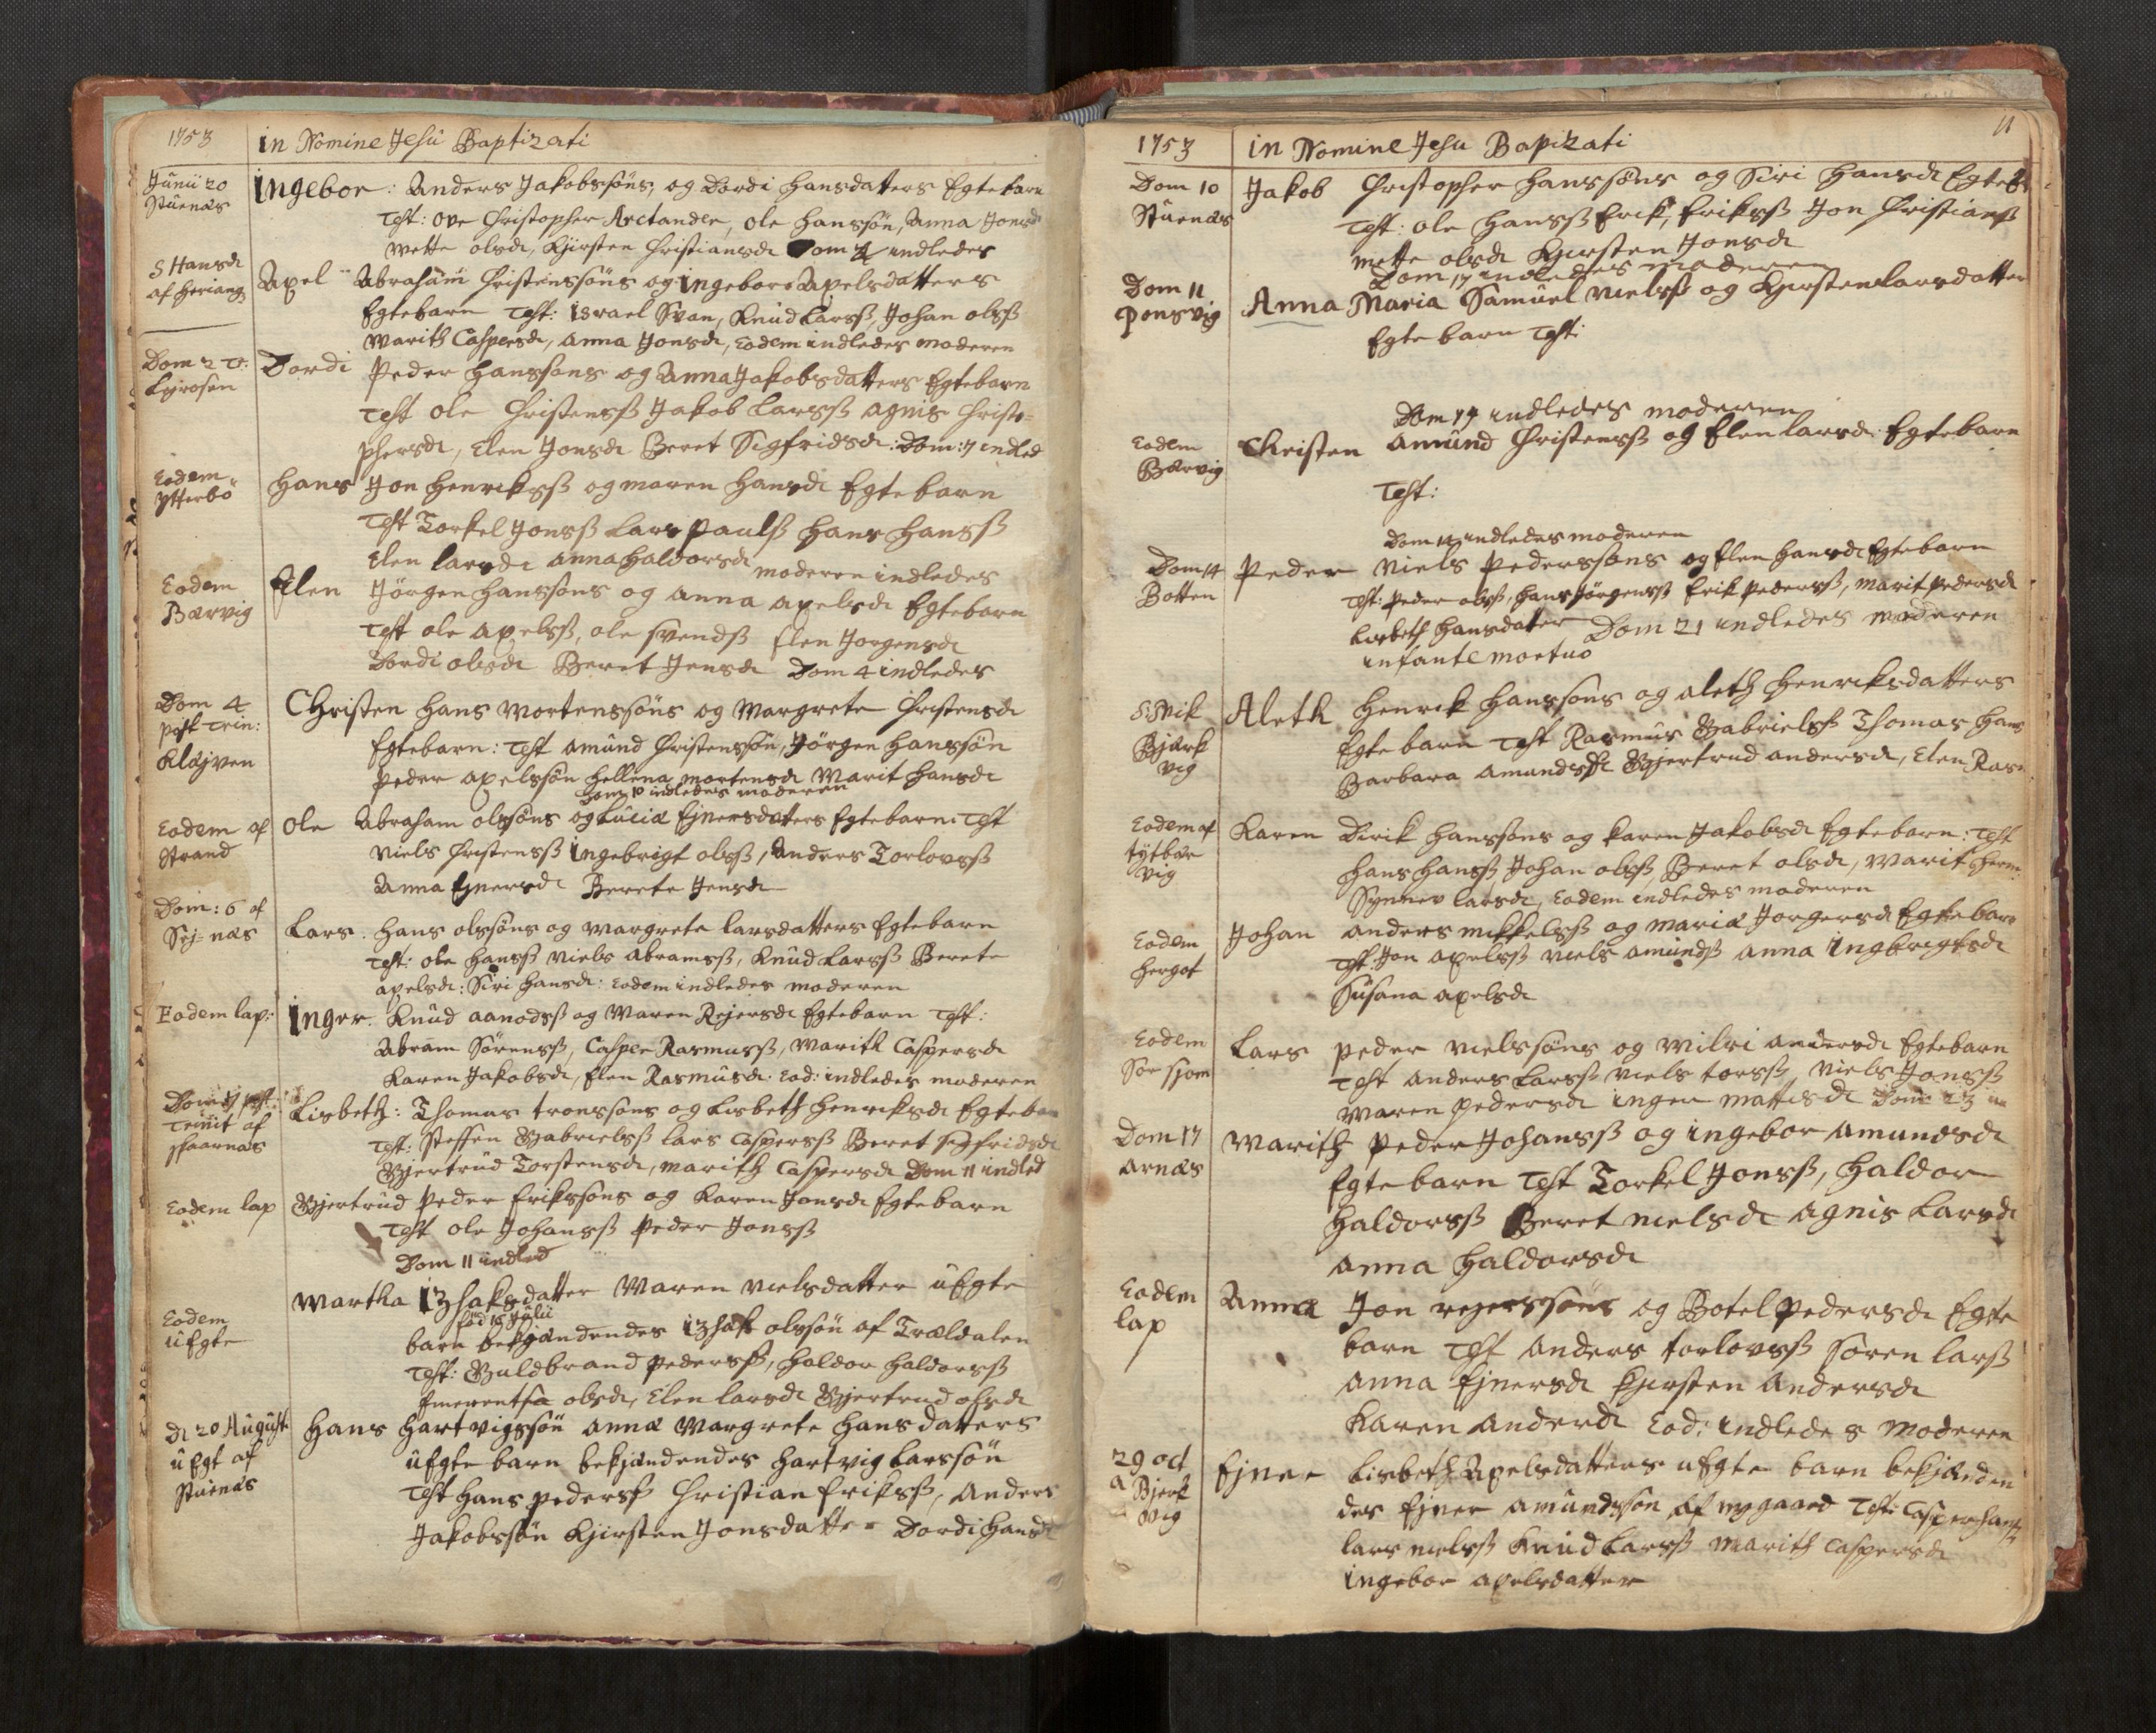 1753
in Nomine Jesu Baptizati
Junii 20
Stuenæs
Ingebor: Anders Jakobssöns, og Dordi Hansdatters Egtebarn
Test: Ove Christopher Arctander, Ole Hanssön, Anna Jonsd
Mette Olsd, Kjirsten Christiansd Dom 4 indledes
S Hansd
af Heriang
Axel Abraham Christenssöns og Ingebore Axelsdatters
Egtebarn Test: Israel Svan, Knud Larsß, Johan Olsß
Marith Caspersd, Anna Jonsd, Eodem indledes moderen
Dom 2 Tr:
Lyrosen
Dordi Peder Hanssöns og Anna Jakobsdatters Egtebarn
Test Ole Christensß Jakob Larsß Agnis Christo=
phersd, Elen Jonsd Beret Sigfridsd: Dom: 7 indled
Eodem
Ytterbö
Hans Jon Henriksß og Maren Hansd Egtebarn
Test Torkel Jonsß Lars Paulsß Hans Hansß
Elen Larsd Anna Haldorsd
moderen indledes
Eodem
Bærvig
Elen Jörgen Hanssöns og Anna Axelsd Egtebarn
Test Ole Axelsß, Ole Svendsß Elen Jorgensd
Dordi Olsd Beret Jensd Dom 4 indledes
Dom 4
post Trin:
Kløjven
Christen Hans Mortenssöns og Margrete Christensd
Egtebarn: Test Amund Christenssön, Jörgen Hanssön
Peder Axelssön Hellena Mortensd Marit Hansd
Dom 10 indledes moderen
Eodem af
Strand
Ole Abraham Olssöns og Lucia Ejnersdatters Egtebarn: Test
Niels Christensß Ingebrigt Olsß, Anders Torlovsß
Anna Ejnersd Berete Jensd
Dom: 6 af
Sej-næs
Lars. Hans Olssöns og Margrete Larsdatters Egtebarn
Test: Ole Hansß Niels Abramsß, Knud Larsß Berete
Axelsd: Siri Hansd: Eodem indledes moderen
Eodem lap:
Inger. Knud Aanodsß og Maren Rejersd Egtebarn Test:
Abram Sörensß, Casper Rasmusß, Marith Caspersd
Karen Jakobsd, Elen Rasmusd. Eod: indledes moderen
Trinit af
skaarnæs
Lisbeth: Thomas Tronssöns og Lisbeth Henriksd Egtebarn
Test: Steffen Gabrielsß Lars Caspersß Beret Sigfridsd
Gjertrud Torstensd, Marith Caspersd Dom 11 indled
Eodem lap
Gjertrud Peder Erikssöns og Karen Jonsd Egtebarn
Test Ole Johansß Peder Jonsß
Dom 11 indled
Eodem
uEgte
Martha Izhaksdatter Maren Nielsdatter uEgte
Julii
barn bekjændendes Izhak Olssön af Trældalen
Test: Guldbrand Pedersß, Haldor Haldorsß
Olsd, Elen Larsd Gjertrud Olsd
d 20 August
uEgt af
Stuenæs
Hans Hartvigssön Anna Margrete Hansdatters
uEgte barn bekjændendes Hartvig Larssön
Test Hans Pedersß Christian Eriksß, Anders
Jakobssön Kjirsten Jonsdatter Dordi Hansd
11
1753
in Nomine Jesu Bapizati
Dom 10
Stuenæs
Jakob Christopher Hanssöns og Siri Hansd Egteb
Test: Ole Hansß Erik, Eriksß Jon Christiansß
Mette Olsd Kjirsten Jonsd
Dom 17 indledes moderen
Dom 11
Ponsvig
Anna Maria Samuel Nielsß og Kjirsten Larsdatter
Egtebarn Test:
Dom 14 indledes moderen
Eodem
Bærvig
Christen Amund Christensß og Elen Larsd. Egtebarn
Test:
Dom 14 indledes moderen
Dom 14
Botten
Peder Niels Pederssöns og Elen Hansd Egtebarn
Test: Peder Olsß, Hans Jörgensß Erik Pedersß, Marit Pedersd
Lisbeth Hansdatter Dom 21 indledes moderen
infante mortuo
Bjærk
vig
Aleth Henrik Hanssöns og Aleth Henriksdatters
Egtebarn Test Rasmus Gabrielsß Thomas Hans
Barbara Amundsd Gjertrud Andersd, Elen Ras
Eodem af
tytbær
vig
Karen Dirik Hanssöns og Karen Jakobsd Egtebarn: Test
Hans Hansß Johan Olsß, Beret Olsd, Marit Herm
Synnev Larsd, Eodem indledes moderen
Eodem
Hergot
Johan Anders Mikkelsß og Maria Jorgensd Egtebarn
Test: Jon Axelsß Niels Amundsß Anna Ingbrigtsd
Susana Axelsd
Eodem
Sör sjom
Lars Peder Nielssöns og Milri Andersd Egtebarn
Test Anders Larsß Niels Torsß, Niels Jonsß
Maren Pedersd Inger Mattisd Dom 23
Dom 17
Arnæs
Marith Peder Johansß og Ingebor Amundsd
Egtebarn Test Torkel Jonsß, Haldor
Haldorsß Beret Nielsd Agnis Larsd
Anna Haldorsd
Eodem
lap
Anna Jon Rejerssöns og Botel Pedersd Egte
barn Test Anders Torlovsß Sören Larsß
Anna Ejnersd Kjirsten Andersd
Karen Anderd Eod: indledes Moderen
29 oct
a Bjerk
vig
Ejner Lisbeth Axelsdatters uEgte barn bekjænden
des Ejner Amundssön af Nygaard Test: Casper Hansß
Lars Nielsß Knud Larsß Marith Caspersd
Ingebor Axelsdatter